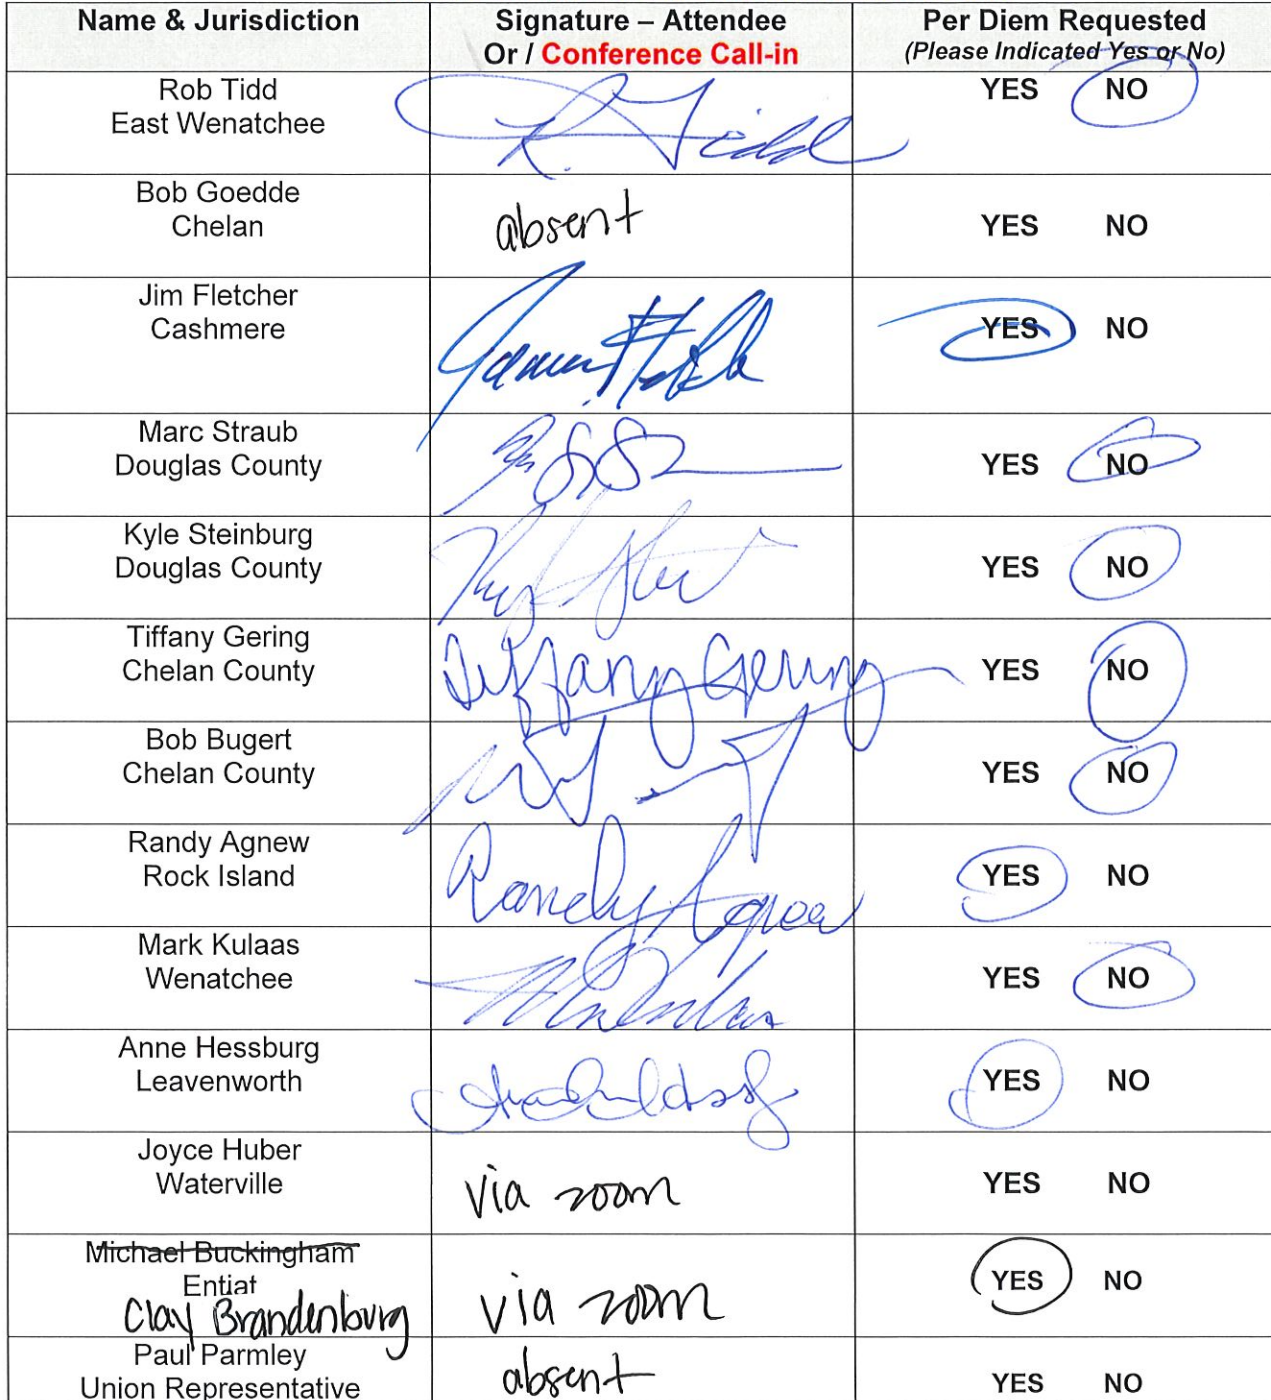 Name & Jurisdiction
Signature – Attendee
Or / Conference Call-in
Per Diem Requested
(Please Indicated Yes or No)
Rob Tidd
East Wenatchee
R. Tidd
YES NO
Bob Goedde
Chelan
absent
YES NO
Jim Fletcher
Cashmere
YES NO
Marc Straub
Douglas County
YES NO
Kyle Steinburg
Douglas County
YES NO
Tiffany Gering
Chelan County
Tiffany Gering
YES NO
Bob Bugert
Chelan County
YES NO
Randy Agnew
Rock Island
Randy Agnew
YES NO
Mark Kulaas
Wenatchee
YES NO
Anne Hessburg
Leavenworth
YES NO
Joyce Huber
Waterville
via zoom
YES NO
Michael Buckingham
Entiat
Clay Brandenburg
via zoom
YES NO
Paul Parmley
Union Representative
absent
YES NO